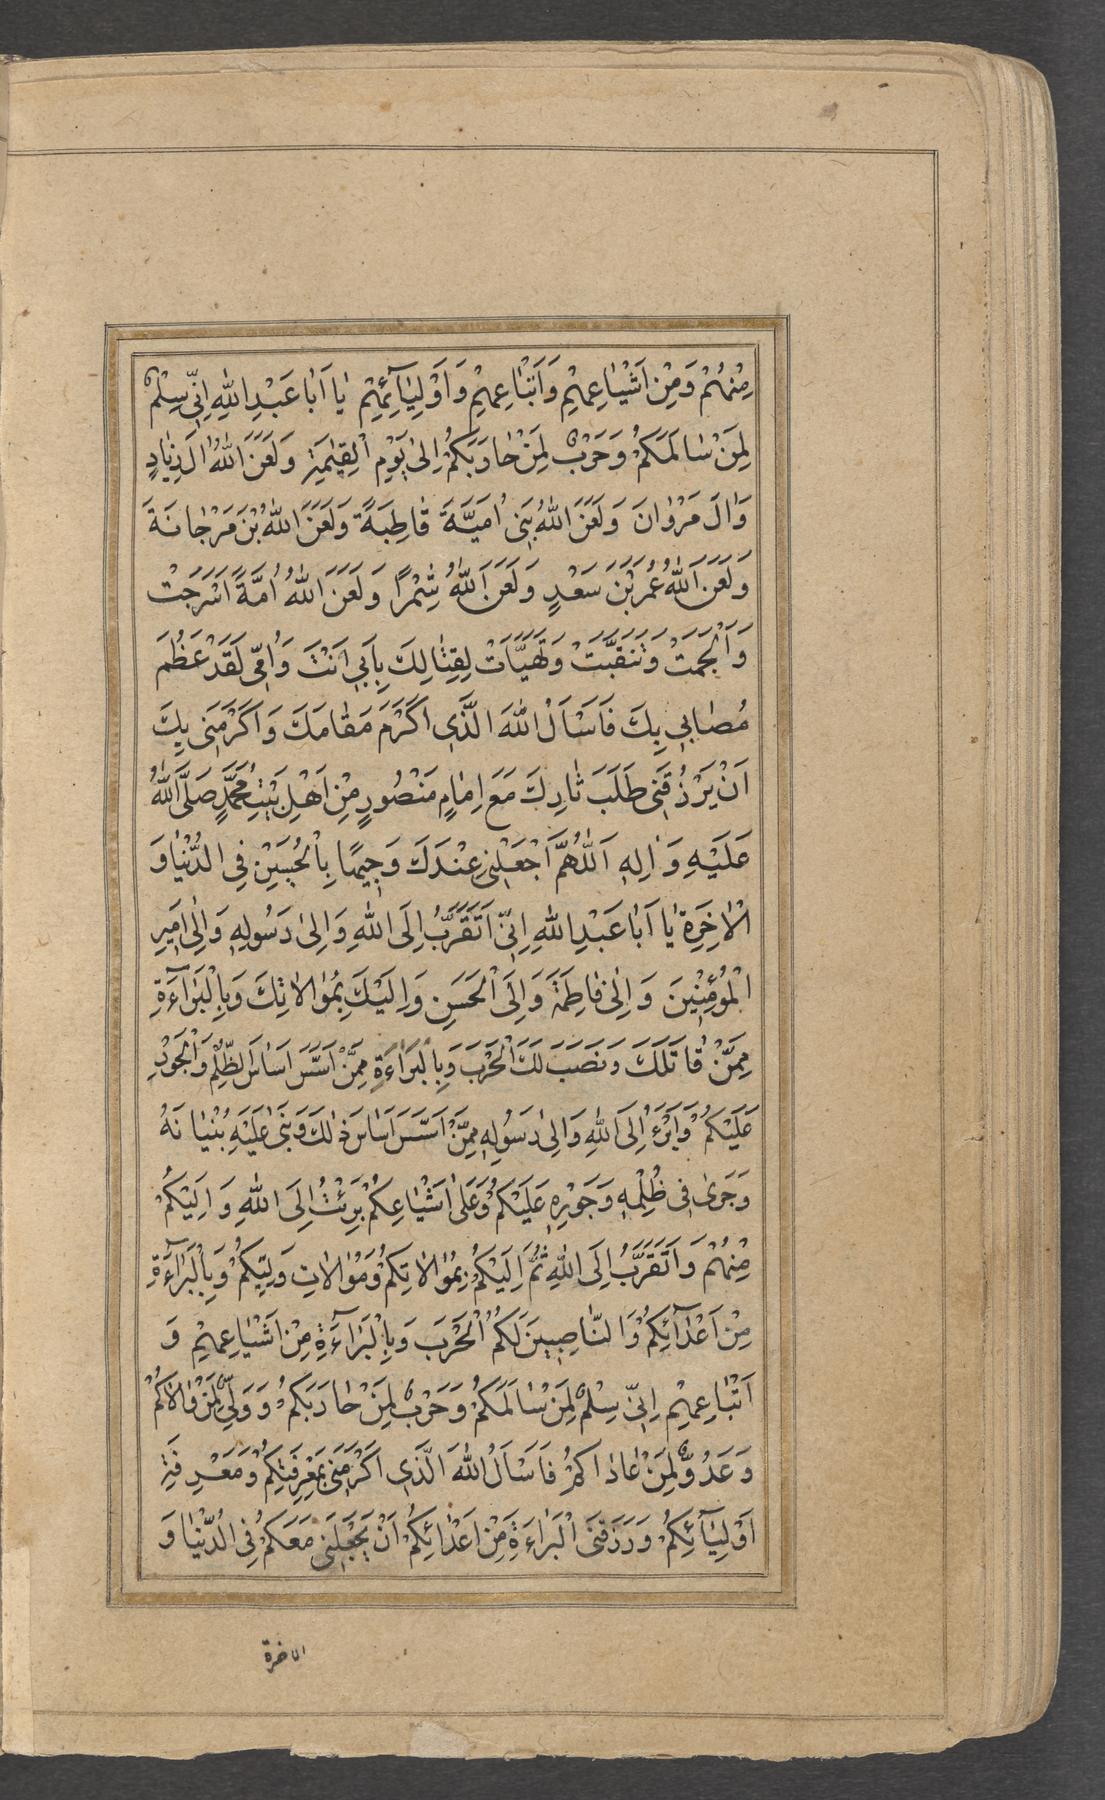 مِنْهُمْ وَمِنْ اَشْیٰاعِهِمْ وَاَتْبٰاعِهِمْ وَاَوْلِیٰآئِهِمْ یٰا اَبٰا عَبْدِاللّٰهِ اِنّی سِلْمٌ
لِمَنْ سٰالَمَکُمْ وَحَرْبٌ لِمَنْ حٰارَبَکُمْ اِلیٰ یَوْمِ الْقِیٰمَةِ وَلَعَنَ اللّٰهُ الَ زِیٰادٍ
وَالَ مَرْوٰانَ وَلَعَنَ اللّٰهُ بَنی اُمَیَّةَ قٰاطِبَةً وَلَعَنَ اللّٰهُ بْنَ مَرْجٰانَةَ
وَلَعَنَ اللّٰهُ عُمَرَبْنَ سَعْدٍ وَلَعَنَ اللّٰهُ شِمْرًا وَلَعَنَ اللّٰهُ اُمَّةً اَسْرَجَتْ
وَاَلْجَمَتْ وَتَنَقَّبَتْ وَتَهَیَّاَتْ لِقِتٰالِكَ بِاَبی اَنْتَ وَاُمّی لَقَدْ عَظُمَ
مُصٰابی بِكَ فَاَسْاَلُ اللّٰهَ الَّذی اَکْرَمَ مَقٰامَكَ وَاَکْرَمَنی بِكَ
اَنْ یَرْزُقَنی طَلَبَ ثٰارِكَ مَعَ اِمٰامٍ مَنْصُورٍ مِنْ اَهْلِ بَیْتِ مُحَمَّدٍ صَلَّی اللّٰهُ
عَلَیْهِ وَاٰلِهِ اَللّٰهُمَّ اجْعَلْنی عِنْدَكَ وَجیهًا بِالْحُسَیْنِ فِی الدُّنْیٰا وَ
الْاٰخِرَةِ یٰا اَبٰا عَبْدِاللّٰهِ اِنّی اَتَقَرَّبُ اِلَی اللّٰهِ وَاِلیٰ رَسُولِهِ وَاِلیٰ اَمیرِ
الْمُؤْمِنینَ وَاِلیٰ فٰاطِمَةَ وَاِلَی الْحَسَنِ وَاِلَیْكَ بِمُوٰالاٰتِكَ وَبِالْبَرٰآءَةِ
مِمَّنْ قٰاتَلَكَ وَنَصَبَ لَكَ الْحَرْبَ وَبِالْبَرٰاءَةِ مِمَّنْ اَسَّسَ اَسٰاسَ الظُّلْمِ وَالْجَوْرِ
عَلَیْکُمْ وَاَبْرَءُ اِلَی اللّٰهِ وَاِلیٰ رَسُولِهِ مِمَّنْ اَسَّسَ اَسٰاسَ ذٰلِكَ وَبَنیٰ عَلَیْهِ بُنْیٰانَهُ
وَجَریٰ فی ظُلْمِهِ وَجَوْرِهِ عَلَیْکُمْ وَعَلیٰ اَشْیٰاعِکُمْ بَرِئْتُ اِلَی اللّٰهِ وَاِلَیْکُمْ
مِنْهُمْ وَاَتَقَرَّبُ اِلَی اللّٰهِ ثُمَّ اِلَیْکُمْ بِمُوٰالاٰتِکُمْ وَمُوٰالاٰتِ وَلِیِّکُمْ وَبِالْبَرٰآءَةِ
مِنْ اَعْدٰآئِکُمْ وَالنّٰاصِبینَ لَکُمُ الْحَرْبَ وَبِالْبَرٰآءَةِ مِنْ اَشْیٰاعِهِمْ وَ
اَتْبٰاعِهِمْ اِنّی سِلْمٌ لِمَنْ سٰالَمَکُمْ وَحَرْبٌ لِمَنْ حٰارَبَکُمْ وَوَلِیٌّ لِمَنْ وٰالاٰکُمْ
وَعَدُوٌّ لِمَنْ عٰادٰاکُمْ فَاَسْاَلُ اللّٰهَ الَّذی اَکْرَمَنی بِمَعْرِفَتِکُمْ وَمَعْرِفَةِ
اَوْلِیٰآئِکُمْ وَرَزَقَنَی الْبَرٰاءَةَ مِنْ اَعْدٰائِکُمْ اَنْ یَجْعَلَنی مَعَکُمْ فِی الدُّنْیٰا وَ
الاخرة